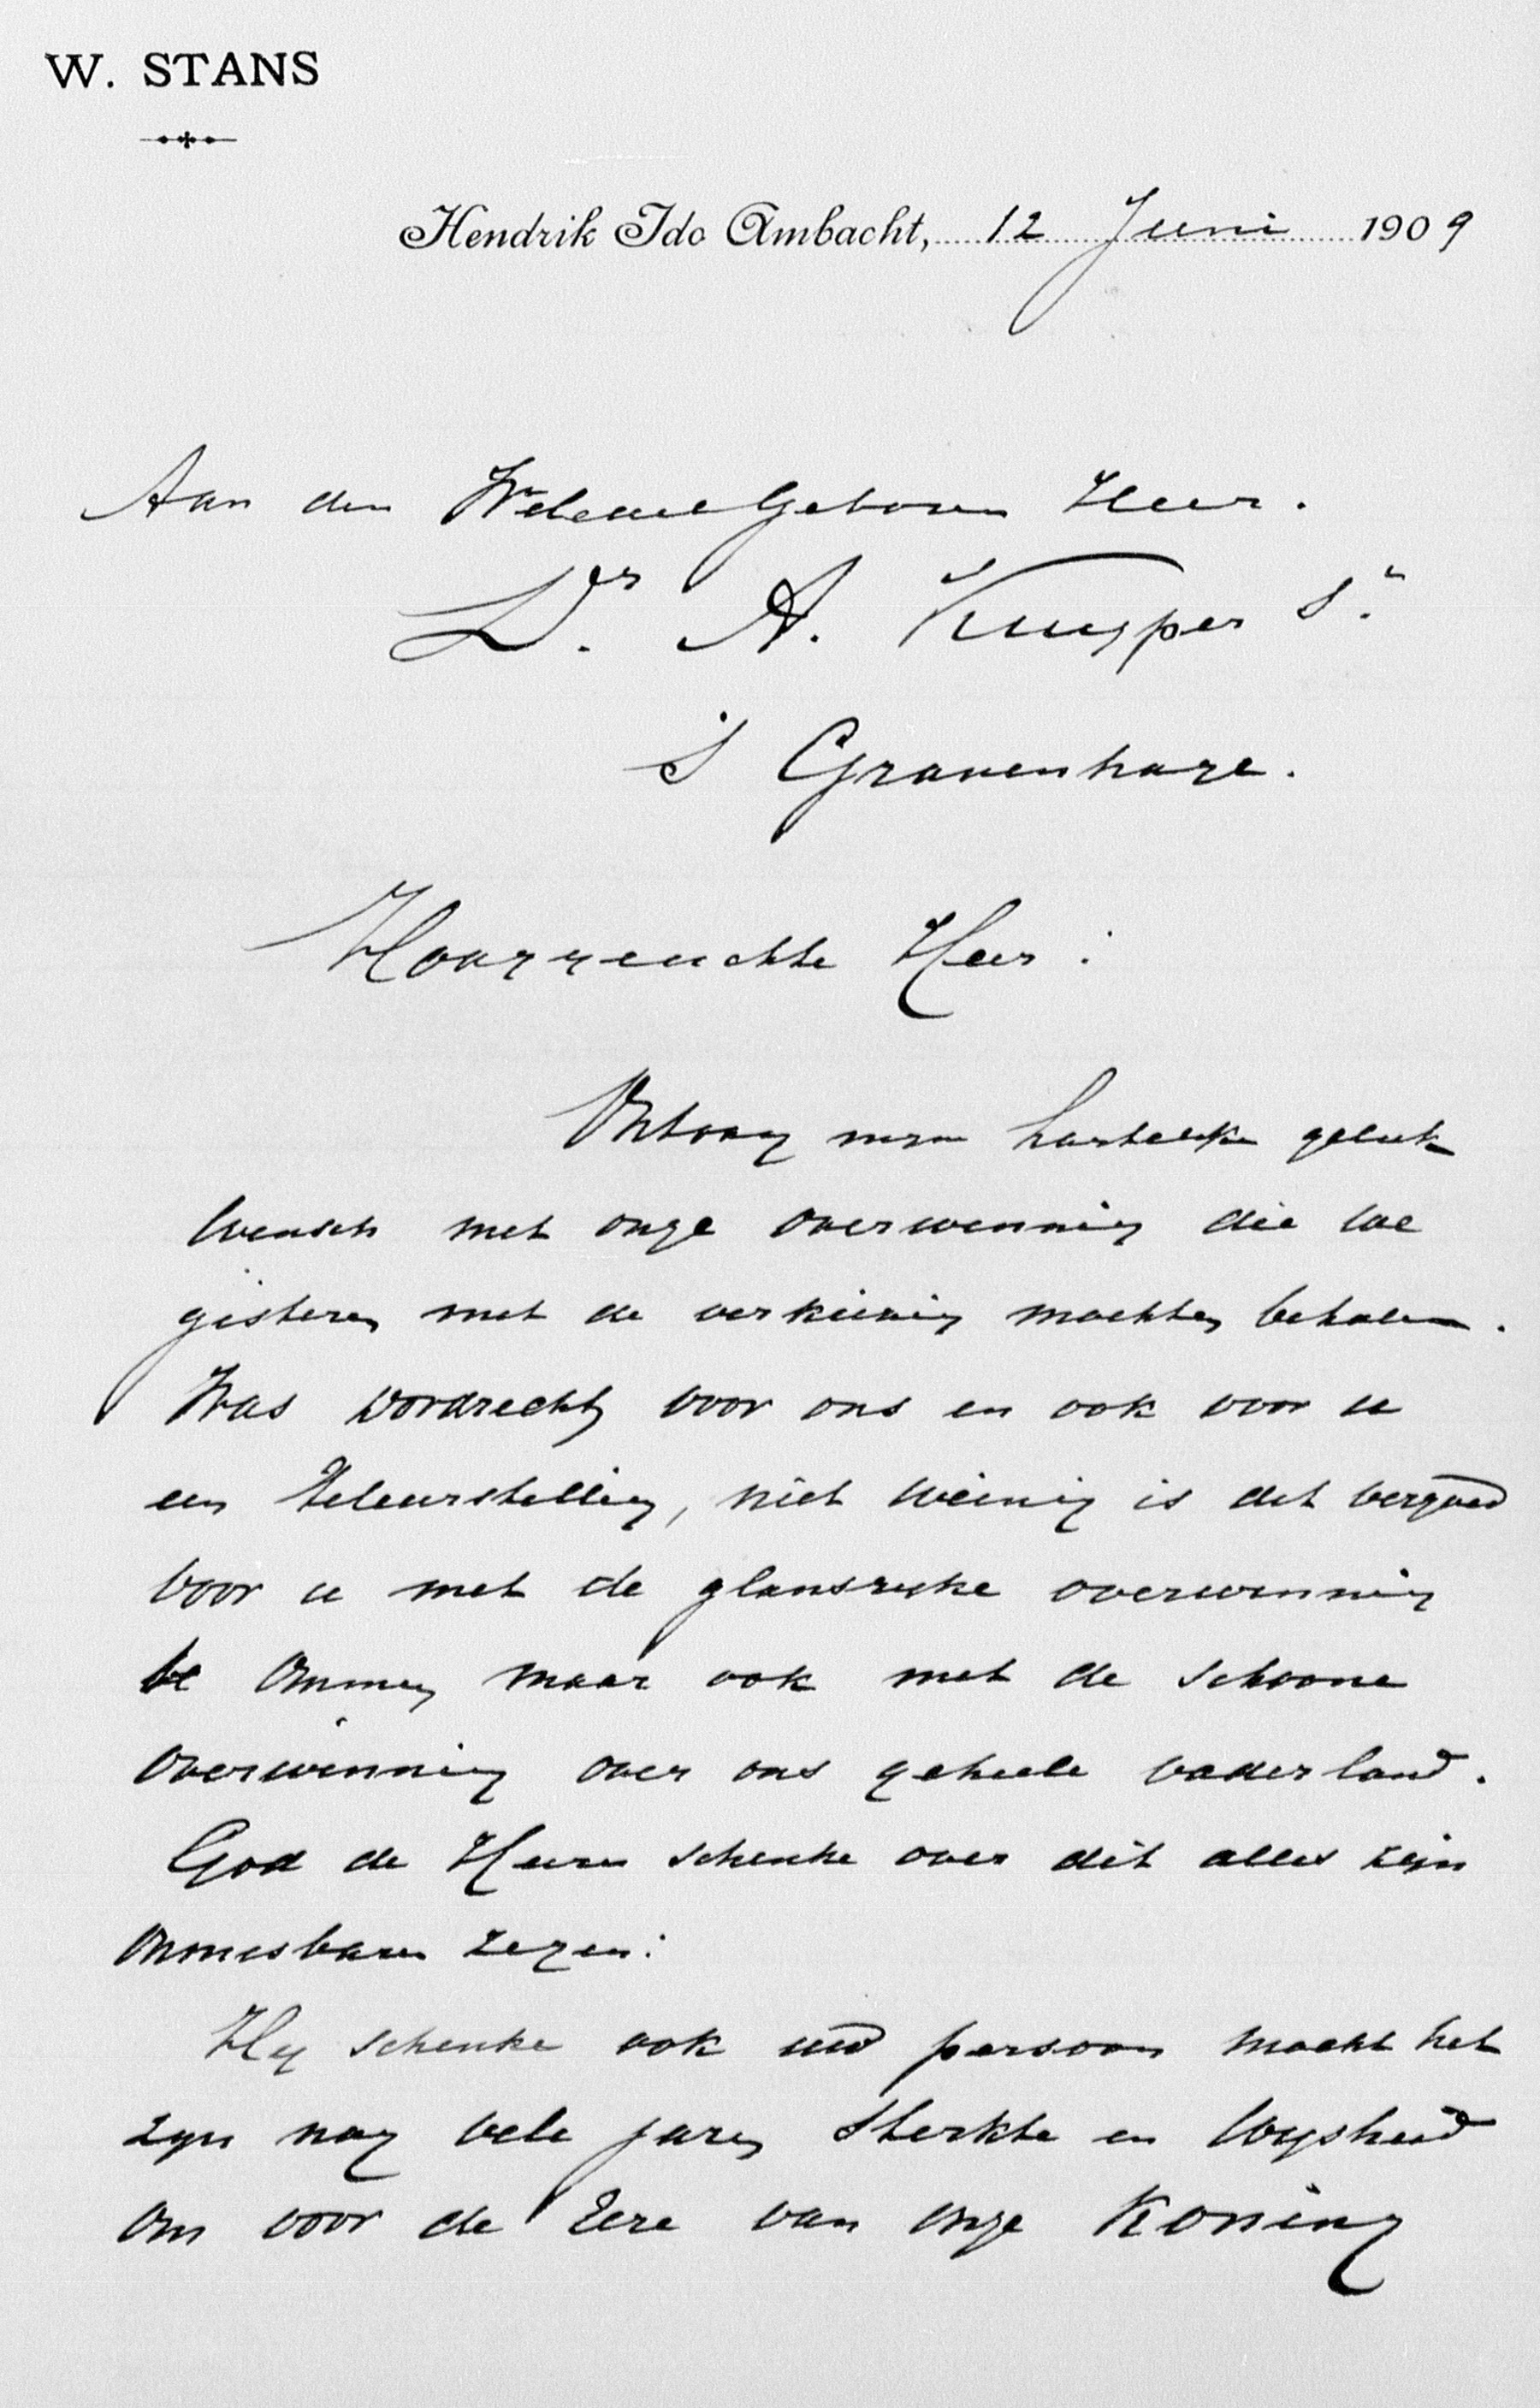 W. STANS
Hendrik Ido Ambacht, 12 Juni 1909
Aan den WelEdelGeboren Heer.
Dr. A. Kuyper Sr.
's Gravenhage.
Hooggeachte Heer:
Ontvang mijn hartelijke geluk
wensch met onze overwinning die we
gisteren met de verkiezing mochten behalen.
Was Dordrecht voor ons en ook voor u
een teleurstelling, niet weinig is dit vergoed
voor u met de glansryke overwinning
te Ommen maar ook met de schoone
overwinning over ons geheele vaderland.
God de Heere schenke over dit alles zijn
onmisbaren zegen:
Hy schenke ook uw persoon mocht het
zyn nog vele jaren sterkte en wysheid
om voor de Eere van onze Koning